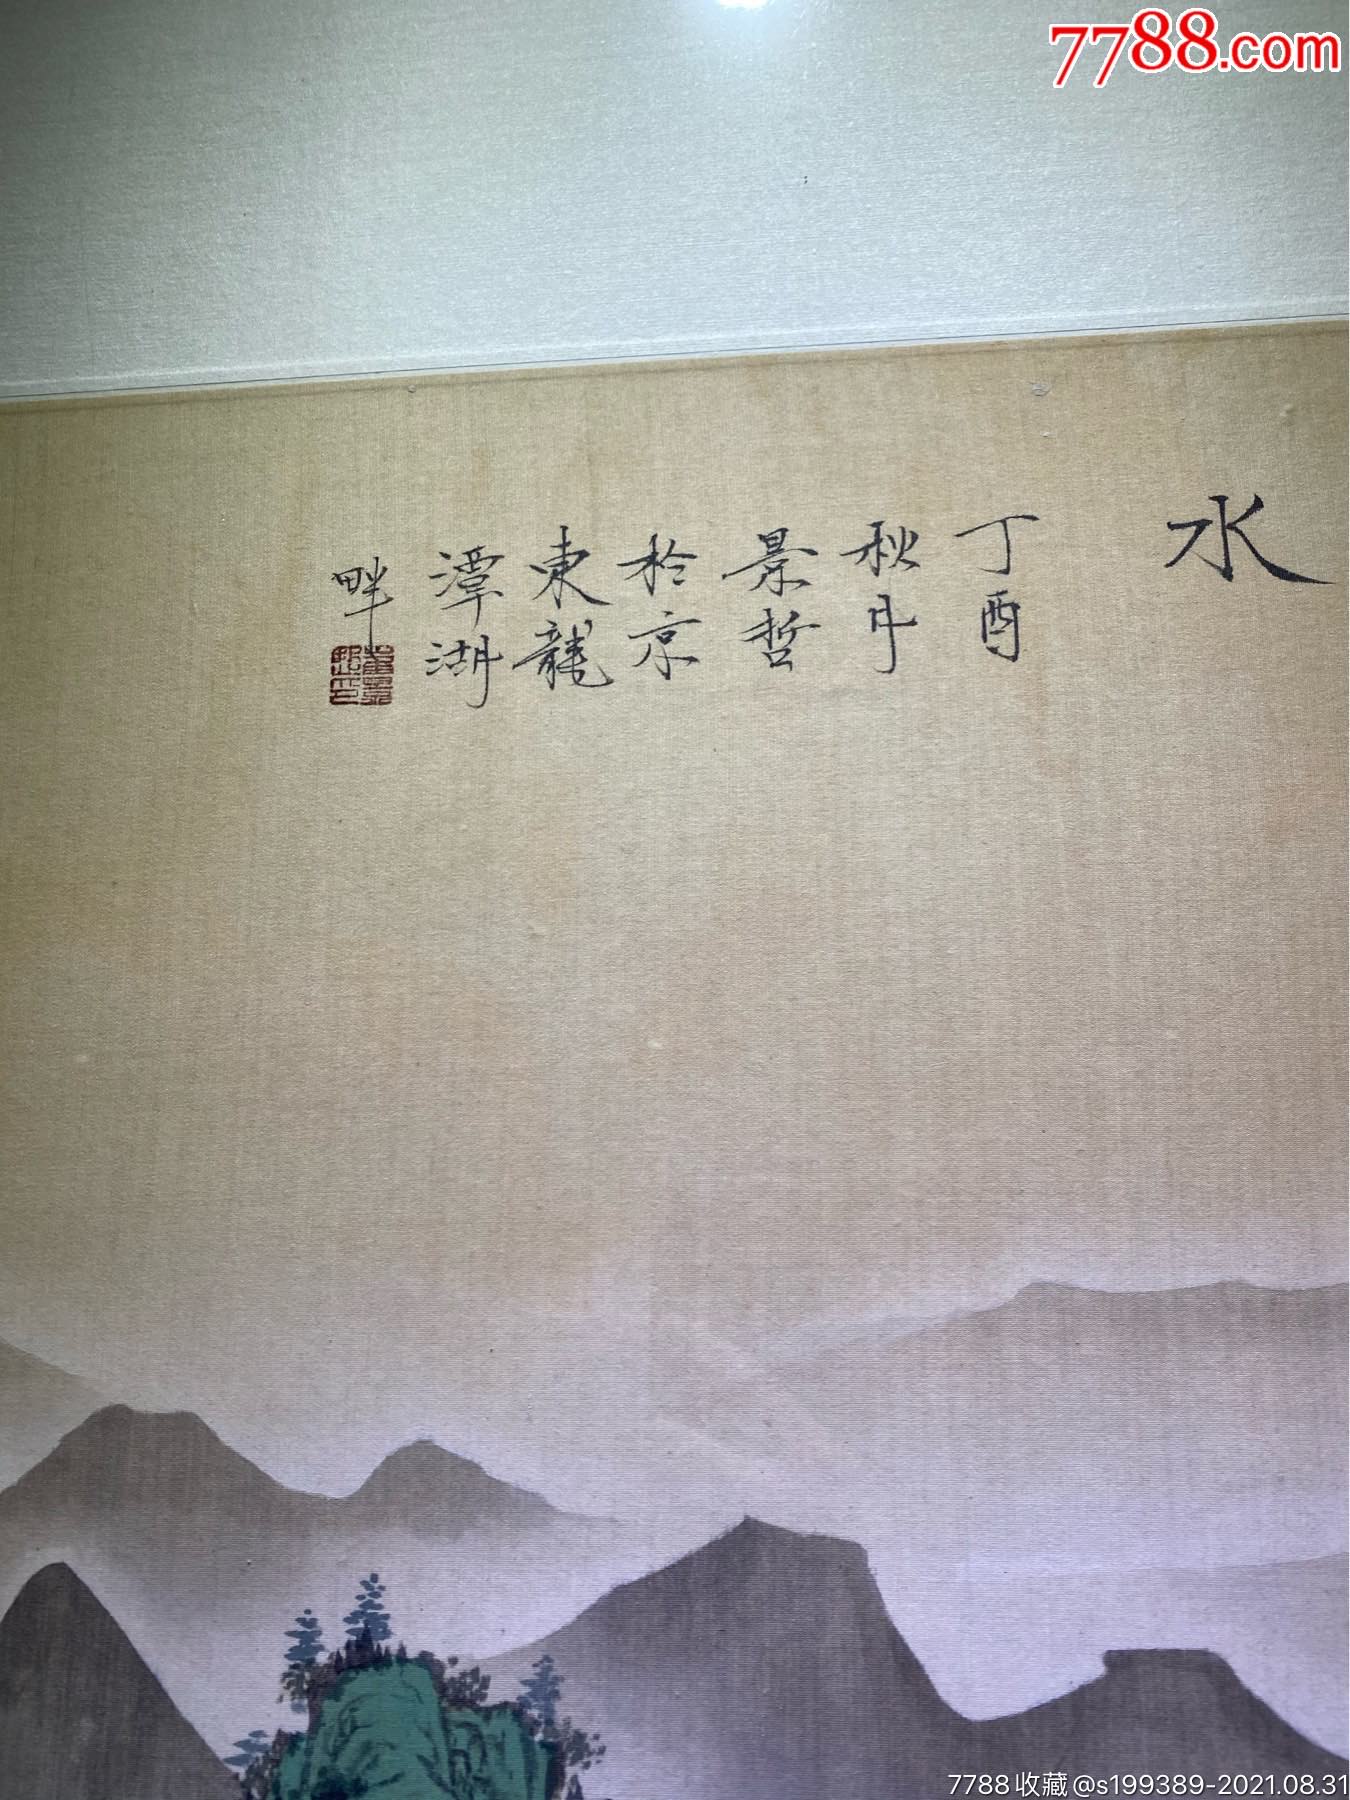 7788.com
水
丁酉
秋月
景哲
於京
東龍
潭湖
畔
7788收藏@s199389-2021.08.31